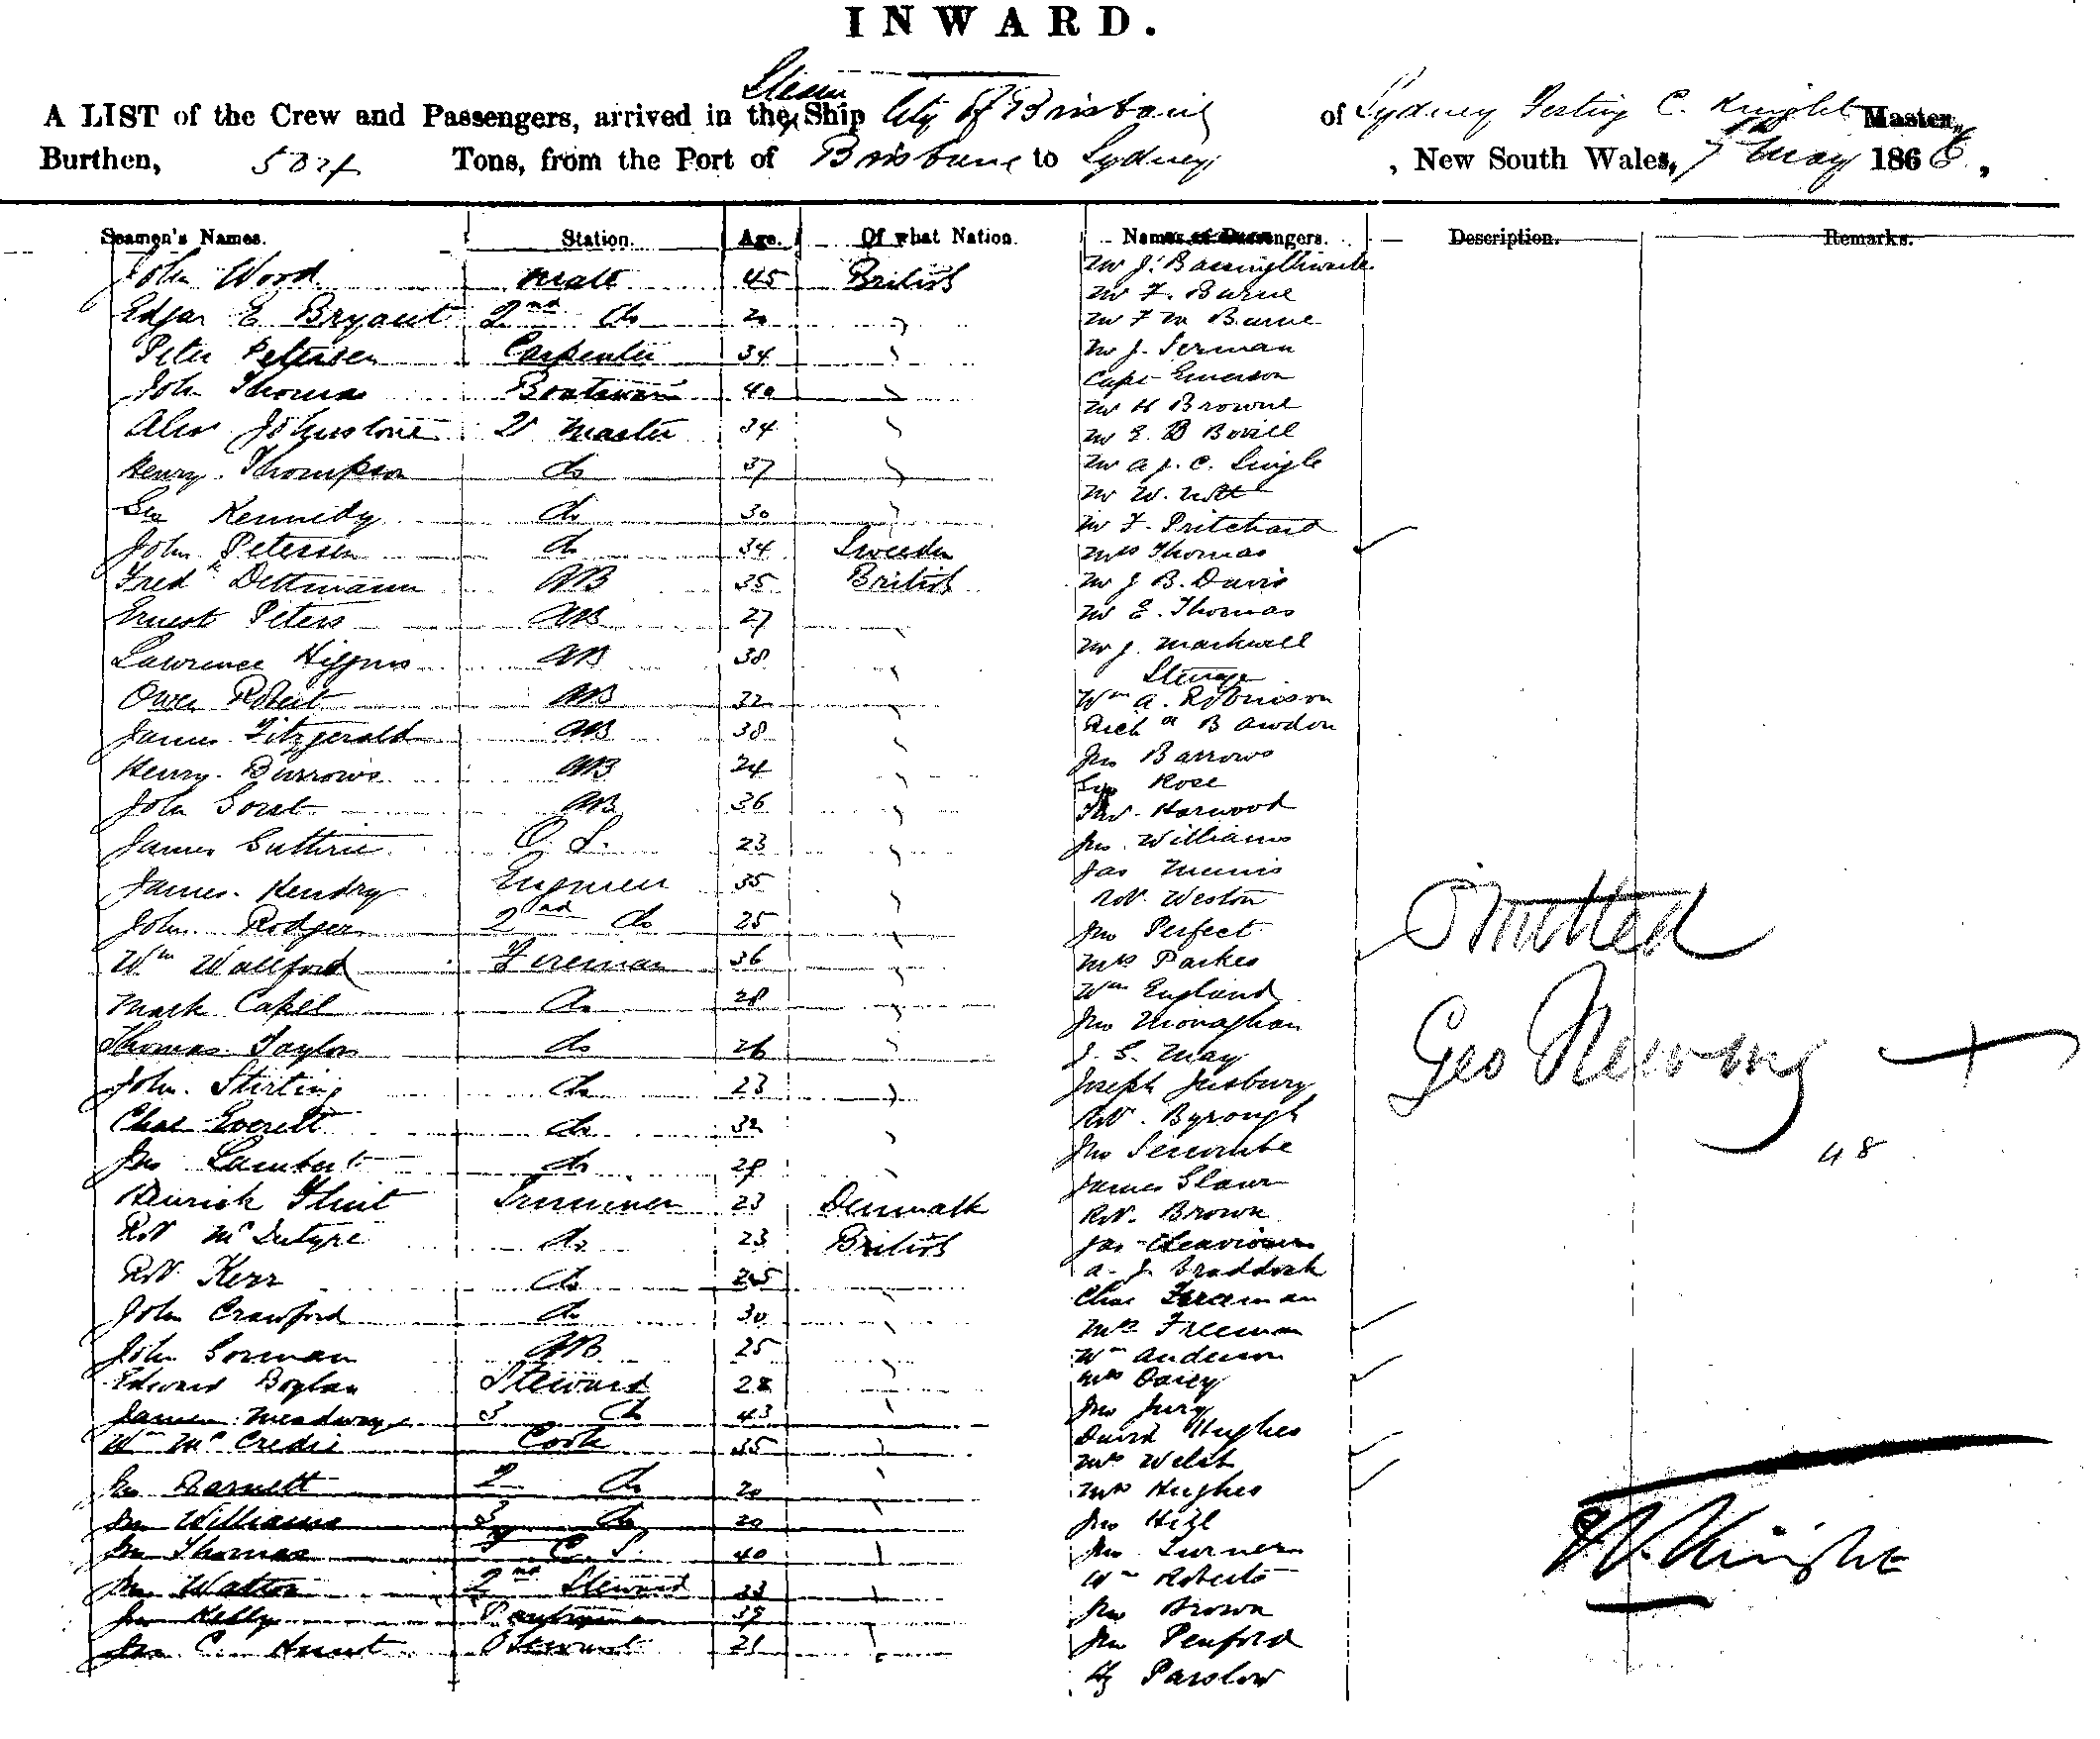 INWARD.
Steam
A LIST of the Crew and Passengers, arrived in the Ship City of Brisbane of Sydney C. Knight Master,
Burthen, 504 Tons, from the Port of Brisbane to Sydney, New South Wales, 7th May 1868,
Seamen's Names. Station. Age. Of what Nation. Names of Passengers. Description. Remarks.
John Wood Mate 45 British Mr J.
Edgar E Bryant 2nd do 20 " Mr F. Burne
Mr F M Burne
Peter Petersen Carpenter 34 " Mr J.
John Thomas Boatswain 40 " Capt Emerson
Mr H Browne
Alexr Johnstone 2r Master 34 " Mr E. B Bovill
Henry Thompson do 37 " Mr A J. C. Single
Mr W. Nott
Geo Kennedy do 30 " Mr F. Pritchard
John Petersen do 34 Sweeden Mrs Thomas
Fredk Dettmann AB 35 British Mr J B. Davis
Ernest Peters AB 27 " Mr E. Thomas
Lawrence Higgins AB 38 " Mr J. Markwell
Steerage
Owen Robert AB 32 " Wm A. Robinson
James Fitzgerald AB 38 " Richd Bawdon
Henry Burrows AB 24 " Jno Barrows
John AB 36 " Geo Rose
Harwood
James Guthrie O. S. 23 " Jno Williams
James Kendry Engineer 35 " Jas
Robt Weston
John Rodger 2nd do 25 " Jno Perfect
Wm Wallford Fireman 36 " Mrs Parkes
Mark Capel do 28 " Wm England
Jno Monaghan
Thomas Taylor do 26 " J. S. May
John Stirling do 23 " Joseph
Chas Everett do 32 " Robt Byrough
Jno Seccombe
Jno Lambert do 29 " James
Henrick Flint Trimmer 23 Denmark Robt Brown
Robt McIntyre do 23 British Jas
Robt Kerr do 25 A. J. Craddock
Chas Freeman
John Crawford do 30 " Mrs Freeman
John Gorman AB 25 " Wm Anderson
Edward Boylan Steward 28 " Mrs
James Meadway 3 do 43 " Jno Jury
Wm McCredie Cook 35 " David Hughes
Mrs Welsh
Jno Barnett 2 do 20 " Mrs Hughes
Jno Williams 3 do 20 " Jno Hill
Jno Thomas C. S. 40 " Jno Turner
Jno Watton 2nd Steward 33 " Wm Roberts
Jno Kelly Pantryman 39 " Jno Brown
Jno C. Hunt 21 " Jno Penfold
Hy Parslow
Omitted
Geo
48
Knight